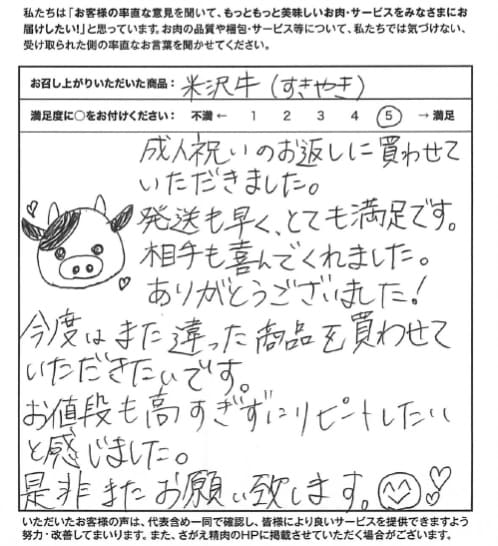 私たちは「お客様の率直な意見を聞いて、もっともっと美味しいお肉・サービスをみなさまにお
届けしたい!」と思っています。お肉の品質や梱包・サービス等について、私たちでは気づけない、
受け取られた側の率直なお言葉を聞かせてください。
お召し上がりいただいた商品: 米沢牛(すきやき)
満足度に○をお付けください: 不満 ← 1 2 3 4 5 → 満足
成人祝いのお返しに買わせて
いただきました。
発送も早く、とても満足です。
相手も喜んでくれました。
ありがとうございました!
今度はまた違った商品を買わせて
いただきたいです。
お値段も高すぎずにリピートしたい
と感じました。
是非またお願い致します。
いただいたお客様の声は、代表含め一同で確認し、皆様により良いサービスを提供できますよう
努力・改善してまいります。また、さがえ精肉のHPに掲載させていただく場合がございます。